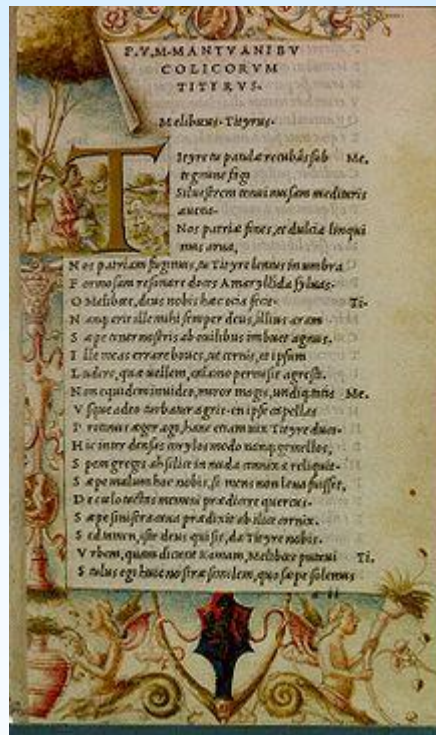 P. V. M. MANTVANI BV
COLICORVM
TITYRVS.
Meliboeus. Tityrus.
Ityre tu patulæ recubãs sub Me.
tegmine fagi
Siluestrem tenui musam meditaris
auena.
Nos patriæ fines, et dulcia linqui
mus arua,
N os patriam fugimus, tu Tityre lentus in umbra
F ormosam resonare doces Amaryllida syluas.
O Meliboee, deus nobis hæc ocia fecit. Ti.
N anq; erit ille mihi semper deus, illius aram
S æpe tener nostris ab ouilibus imbuet agnus.
I lle meas errare boues, ut cernis, et ipsum
L udere, quæ uellem, calamo permisit agresti.
N on equidem inuideo, miror magis, undiq; totis Me.
V sque adeo turbatur agris. en ipse capellas
P rotinus æger ago, hanc etiam uix Tityre duco.
H ic inter densas corylos modo nanq; gemellos,
S pem gregis ah silice in nuda connixa reliquit.
S æpe malum hoc nobis, si mens non leua fuisset,
D e cœlo tactas memini prædicere quercus.
S æpe sinistra caua prædixit ab ilice cornix.
S ed tamen, iste deus qui sit, da Tityre nobis.
V rbem, quam dicunt Romam, Meliboee putaui Ti.
S tultus ego huic nostræ similem, quo sæpe solemus